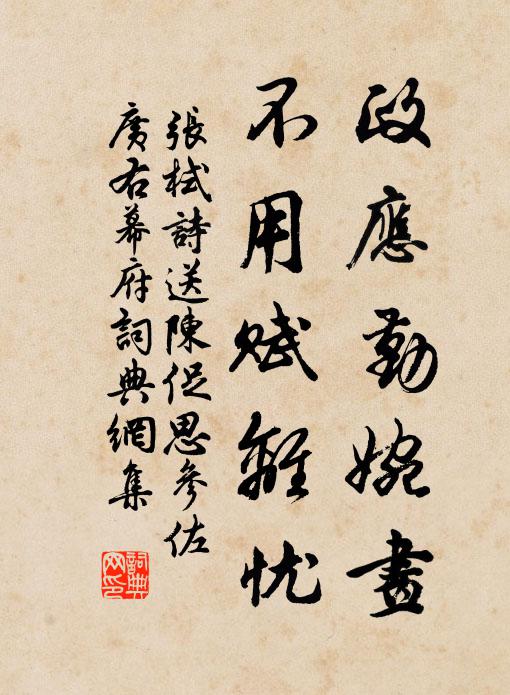 政應勤婉畫
不用賦離忧
張栻詩送陳促思參佐
廣右幕府詞典網集
詞典网印